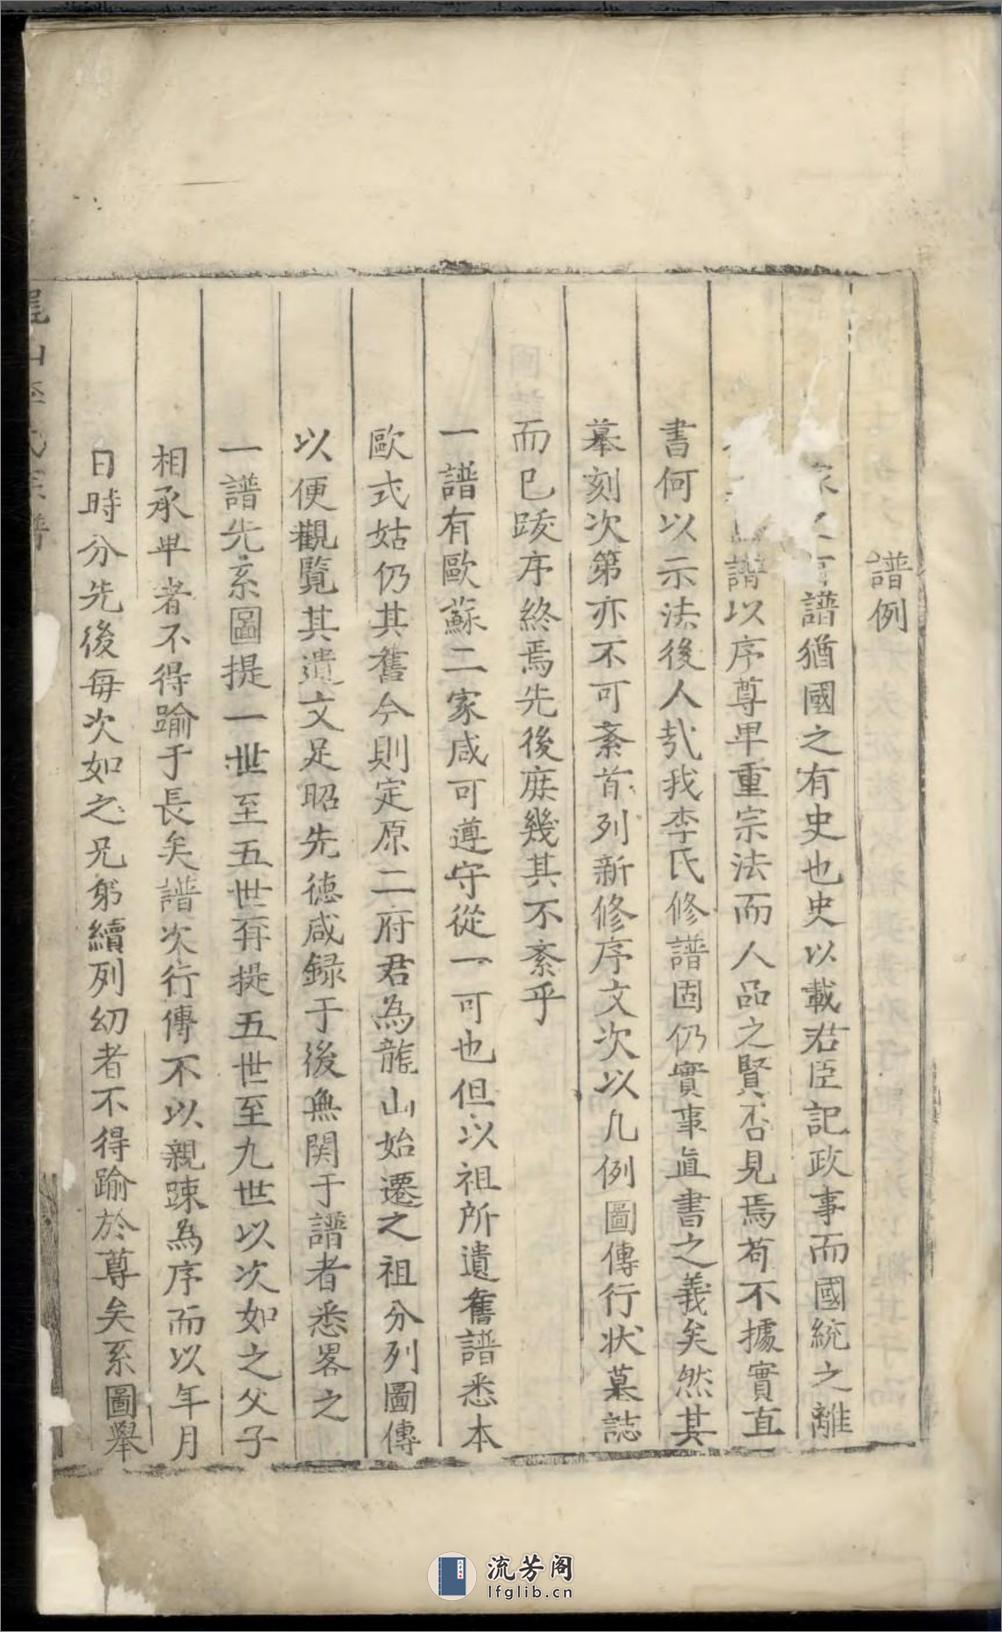 譜例
家之有譜猶國之有史也史以載君臣記政事而國統之離
譜以序尊卑重宗法而人品之賢否見焉苟不據實直
書何以示法後人哉我李氏修譜固仍實事直書之義矣然其
摹刻次第亦不可紊首列新修序文次以凡例圖傳行狀墓誌
而已跋序終焉先後庶幾其不紊乎
一譜有歐蘇二家咸可遵守從一可也但以祖所遺舊譜悉本
歐式姑仍其舊今則定原二府君為龍山始遷之祖分列圖傳
以便觀覽其遺文足昭先德咸録于後無関于譜者悉畧之
一譜先系圖提一世至五世再提五世至九世以次如之父子
相承卑者不得踰于長矣譜次行傳不以親踈為序而以年月
日時分先後每次如之兄弟續列幼者不得踰於尊矣系圖舉
山李氏宗譜
流芳阁
lfglib.cn